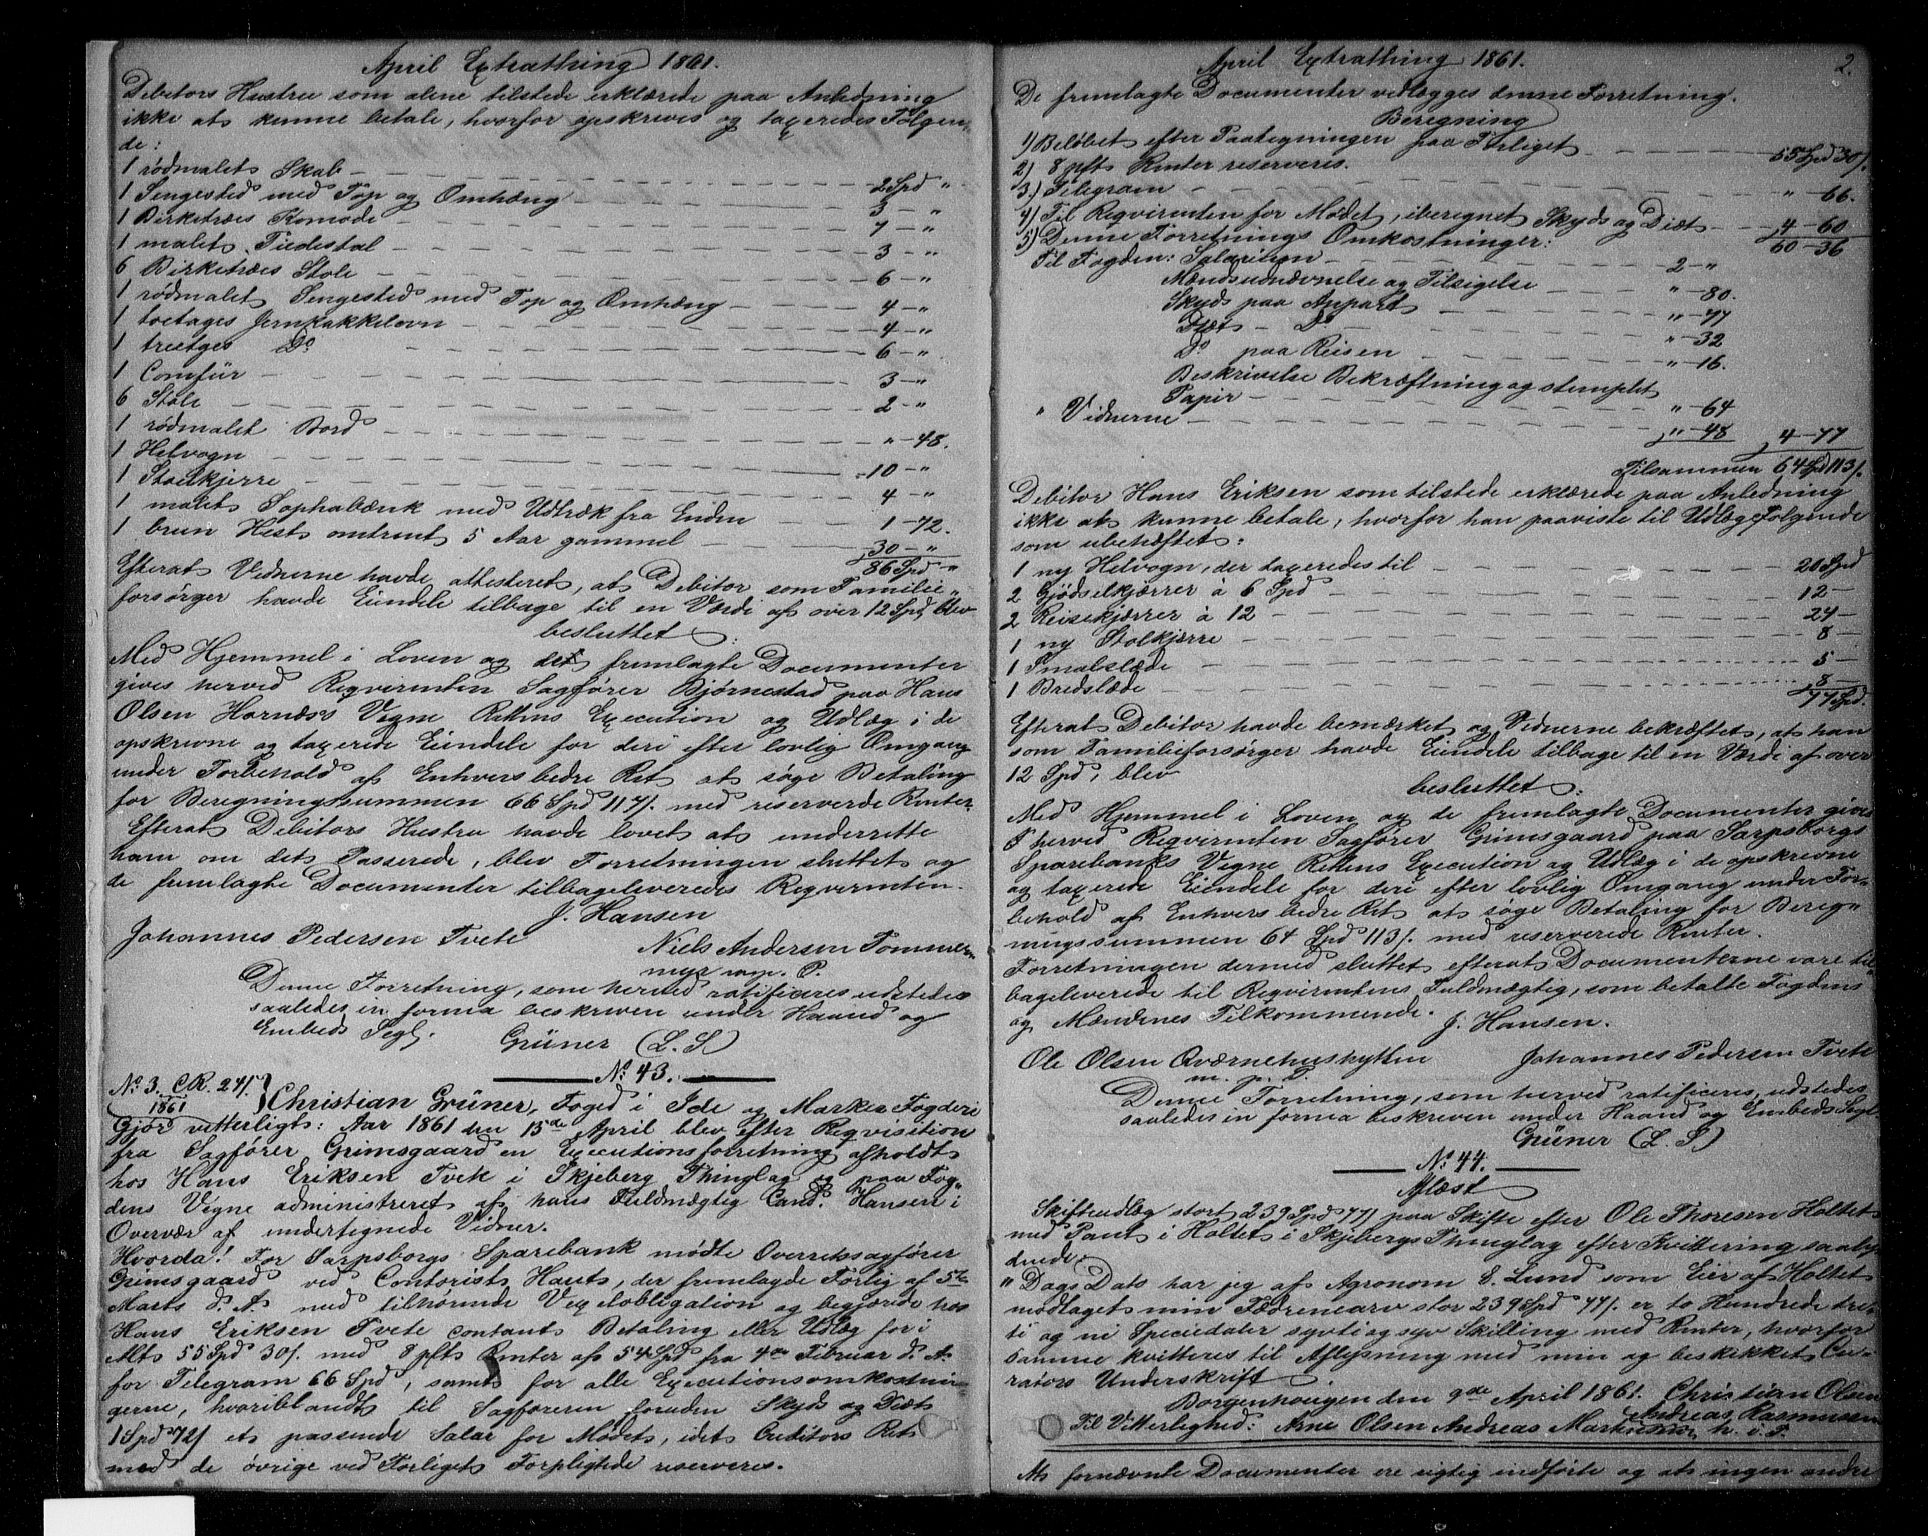 April Extrathing 1861.
Debitors Hustru som alene tilstede erklærede paa Anledning
ikke at kunne betale, hvorfor opskreves og taxeredes Følgen-
de:
1 rødmalet Skab — 2 Spd "
1 Sengested med Top og Omhæng — 3 — "
1 Birketræes Komode — 7 — "
1 malet Piedestal — 3 — "
6 Birketræes Stole — 6 — "
1 rødmalet Sengested med Top og Omhæng — 4 — "
1 toetages Jernkakkelovn — 4 — "
1 treetges Do — 6 — "
1 Comfür — 3 — "
6 Stole — 2 — "
1 rødmalet Bord — " — 48.
1 Helvogn — 10 — "
1 Stolkjerre — 4 — "
1 malet Sophabænk med Udtræk fra Enden — 1 — 72.
1 brun Hest omtrent 5 Aar gammel — 30 — "
86 Spd "
Efterat Vidnerne havde attesteret, at Debitor som Familie-
forsørger havde Eiendele tilbage til en Værde af over 12 Spd, blev
besluttet:
Med Hjemmel i Loven og det fremlagte Documenter
gives herved Reqvirenten Sagfører Bjørnestad paa Hans
Olsen Hornæs's Vegne Rettens Execution og Udlæg i de
opskrevne og taxerede Eiendele for deri efter lovlig Omgang
under Forbehold af Enhvers bedre Ret at søge Betaling
for Beregningssummen 66 Spd 117/. med reserverede Renter.
Efterat Debitors Hustru havde lovet at underrette
ham om det Passerede, blev Forretningen sluttet og
de fremlagte Documenter tilbageleveredes Reqvirenten.
J. Hansen
Johannes Pedersen Tvete Niels Andersen Tommer-
m. P.
Denne Forretning, som herved ratificeres udstedes
saaledes in forma beskreven under Haand og
Embeds Segl.
Grüner (L. S)
No 43.
No 3. C.R. 24/. 1861 } Christian Grüner, Foged i Ide og Markers Fogderi
Gjør vitterligt: Aar 1861 den 15de April blev efter Reqvisition
fra Sagfører Grimsgaard en Executionsforretning afholdt
hos Hans Eriksen Tvete i Skjeberg Thinglag og paa Fog-
dens Vegne administreret af hans Fuldmægtig Cand. Hansen i
Overvær af undertegnede Vidner.
Hvorda! For Sarpsborgs Sparebank mødte Overretssagfører
Grimsgaard ved Contorist Hauts, der fremlagde Forlig af 5te
Marts d. A. med tilhørende Vexelobligation og begjærede hos
Hans Eriksen Tvete contant Betaling eller Udlæg for i
Alt 55 Spd 30/. med 8 pCts Renter af 54 Spd fra 4de Februar d. A.
for Telegram 66 Spd, samt for alle Executionsomkostnin-
gerne, hvoriblandt til Sagføreren foruden Skyds og Diæt
1 Spd 72/ et passende Salar for Mødet, idet Creditors Ret
med de øvrige ved Forliget Forpligtede reserveres.
April Extrathing 1861. 2.
De fremlagte Documenter vedlægges denne Forretning.
Beregning
1) Beløbet efter Paategningen paa Forliget — 55 Spd 30/.
2) 8 pCts Renter reserveres.
3.) Telegram — " — 66.
4) Til Reqvirenten for Mødet, iberegnet Skyds og Diæt — 4 — 60
60 — 36
5) Denne Forretnings Omkostninger:
Til Fogden: Salarium — 2 — "
Mændsudnævnelse og Tilsigelse — " — 80.
Skyds paa Anpart — " — 77
Diæt — Do — " — 32
Do paa Reisen — " — 16.
Beskrivelse Bekræftning og stemplet
Papir — " — 64
" Vidnerne — " — 48 4 — 77
Tilsammen 64 Spd 113/.
Debitor Hans Eriksen som tilstede erklærede paa Anledning
ikke at kunne betale, hvorfor han paaviste til Udlæg Følgende
som ubehæftet:
1 ny Helvogn, der taxeredes til — 20 Spd
2 Gjødselkjærrer à 6 Spd — 12 —
2 Reisekjærrer à 12 — 24 —
1 ny Stolkjærre — 8 —
1 Smalslæde — 5 —
1 Bredslæde — 8 —
77 Spd.
Efterat Debitor havde bemærket og Vidnerne bekræftet, at han
som Familieforsørger havde Eiendele tilbage til en Værdi af over
12 Spd, blev
besluttet:
Med Hjemmel i Loven og de fremlagte Documenter gives
herved Reqvirenten Sagfører Grimsgaard paa Sarpsborgs
Sparebanks Vegne Rettens Execution og Udlæg i de opskrevne
og taxerede Eiendele for deri efter lovlig Omgang under For-
behold af Enhvers bedre Ret at søge Betaling for Bereg-
ningssummen 64 Spd 113/. med reserverede Renter.
Forretningen dermed sluttet efterat Documenterne vare til-
bageleverede til Reqvirentens Fuldmægtig, som betalte Fogdens
og Mændenes Tilkommende.
J. Hansen.
Ole Olsen Qværnehushytten Johannes Pedersen Tvete
m. p. P.
Denne Forretning, som herved ratificeres, udstedes
saaledes in forma beskreven under Haand og Embeds Segl
Grüner (L. S)
No 44.
Aflæst
Skifteudlæg stort 239 Spd 77/ paa Skifte efter Ole Thoresen Holtet
med Pant i Holtet i Skjebergs Thinglag efter Kvittering saaly-
dende:
"Dags Dato har jeg af Agronom E. Lund som Eier af Holtet
modtaget min Fædrenearv stor 239 Spd 77/. er to Hundrede tre-
ti og ni Speciedaler sytti og syv Skilling med Renter, hvorfor
samme kvitteres til Aflysning med min og beskikket Cu-
rators Underskrift
Borgenhaugen den 9de April 1861. Christian Olsen
Til Vitterlighed: Arne Olsen Andreas Martinsen Andreas Rasmussen
At fornævnte Documenter ere rigtig indførte og at ingen andre